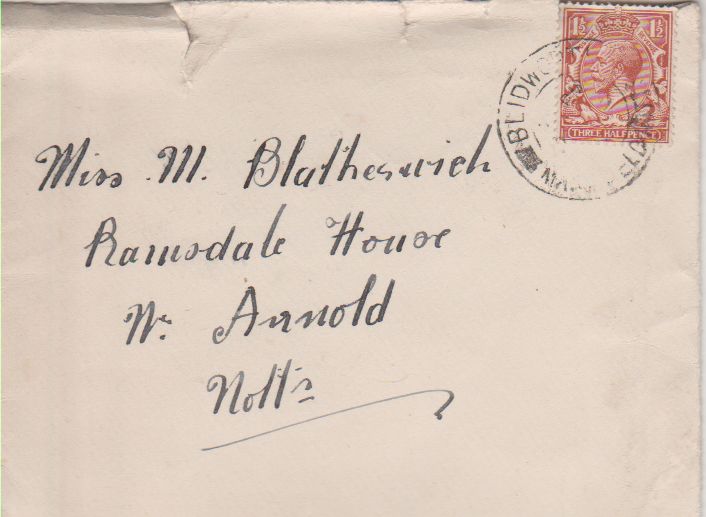 1½ 1½
THREE HALFPENCE
BLIDWORTH
Miss M. Blatherwich
Ramsdale House
Nr. Arnold
Notts